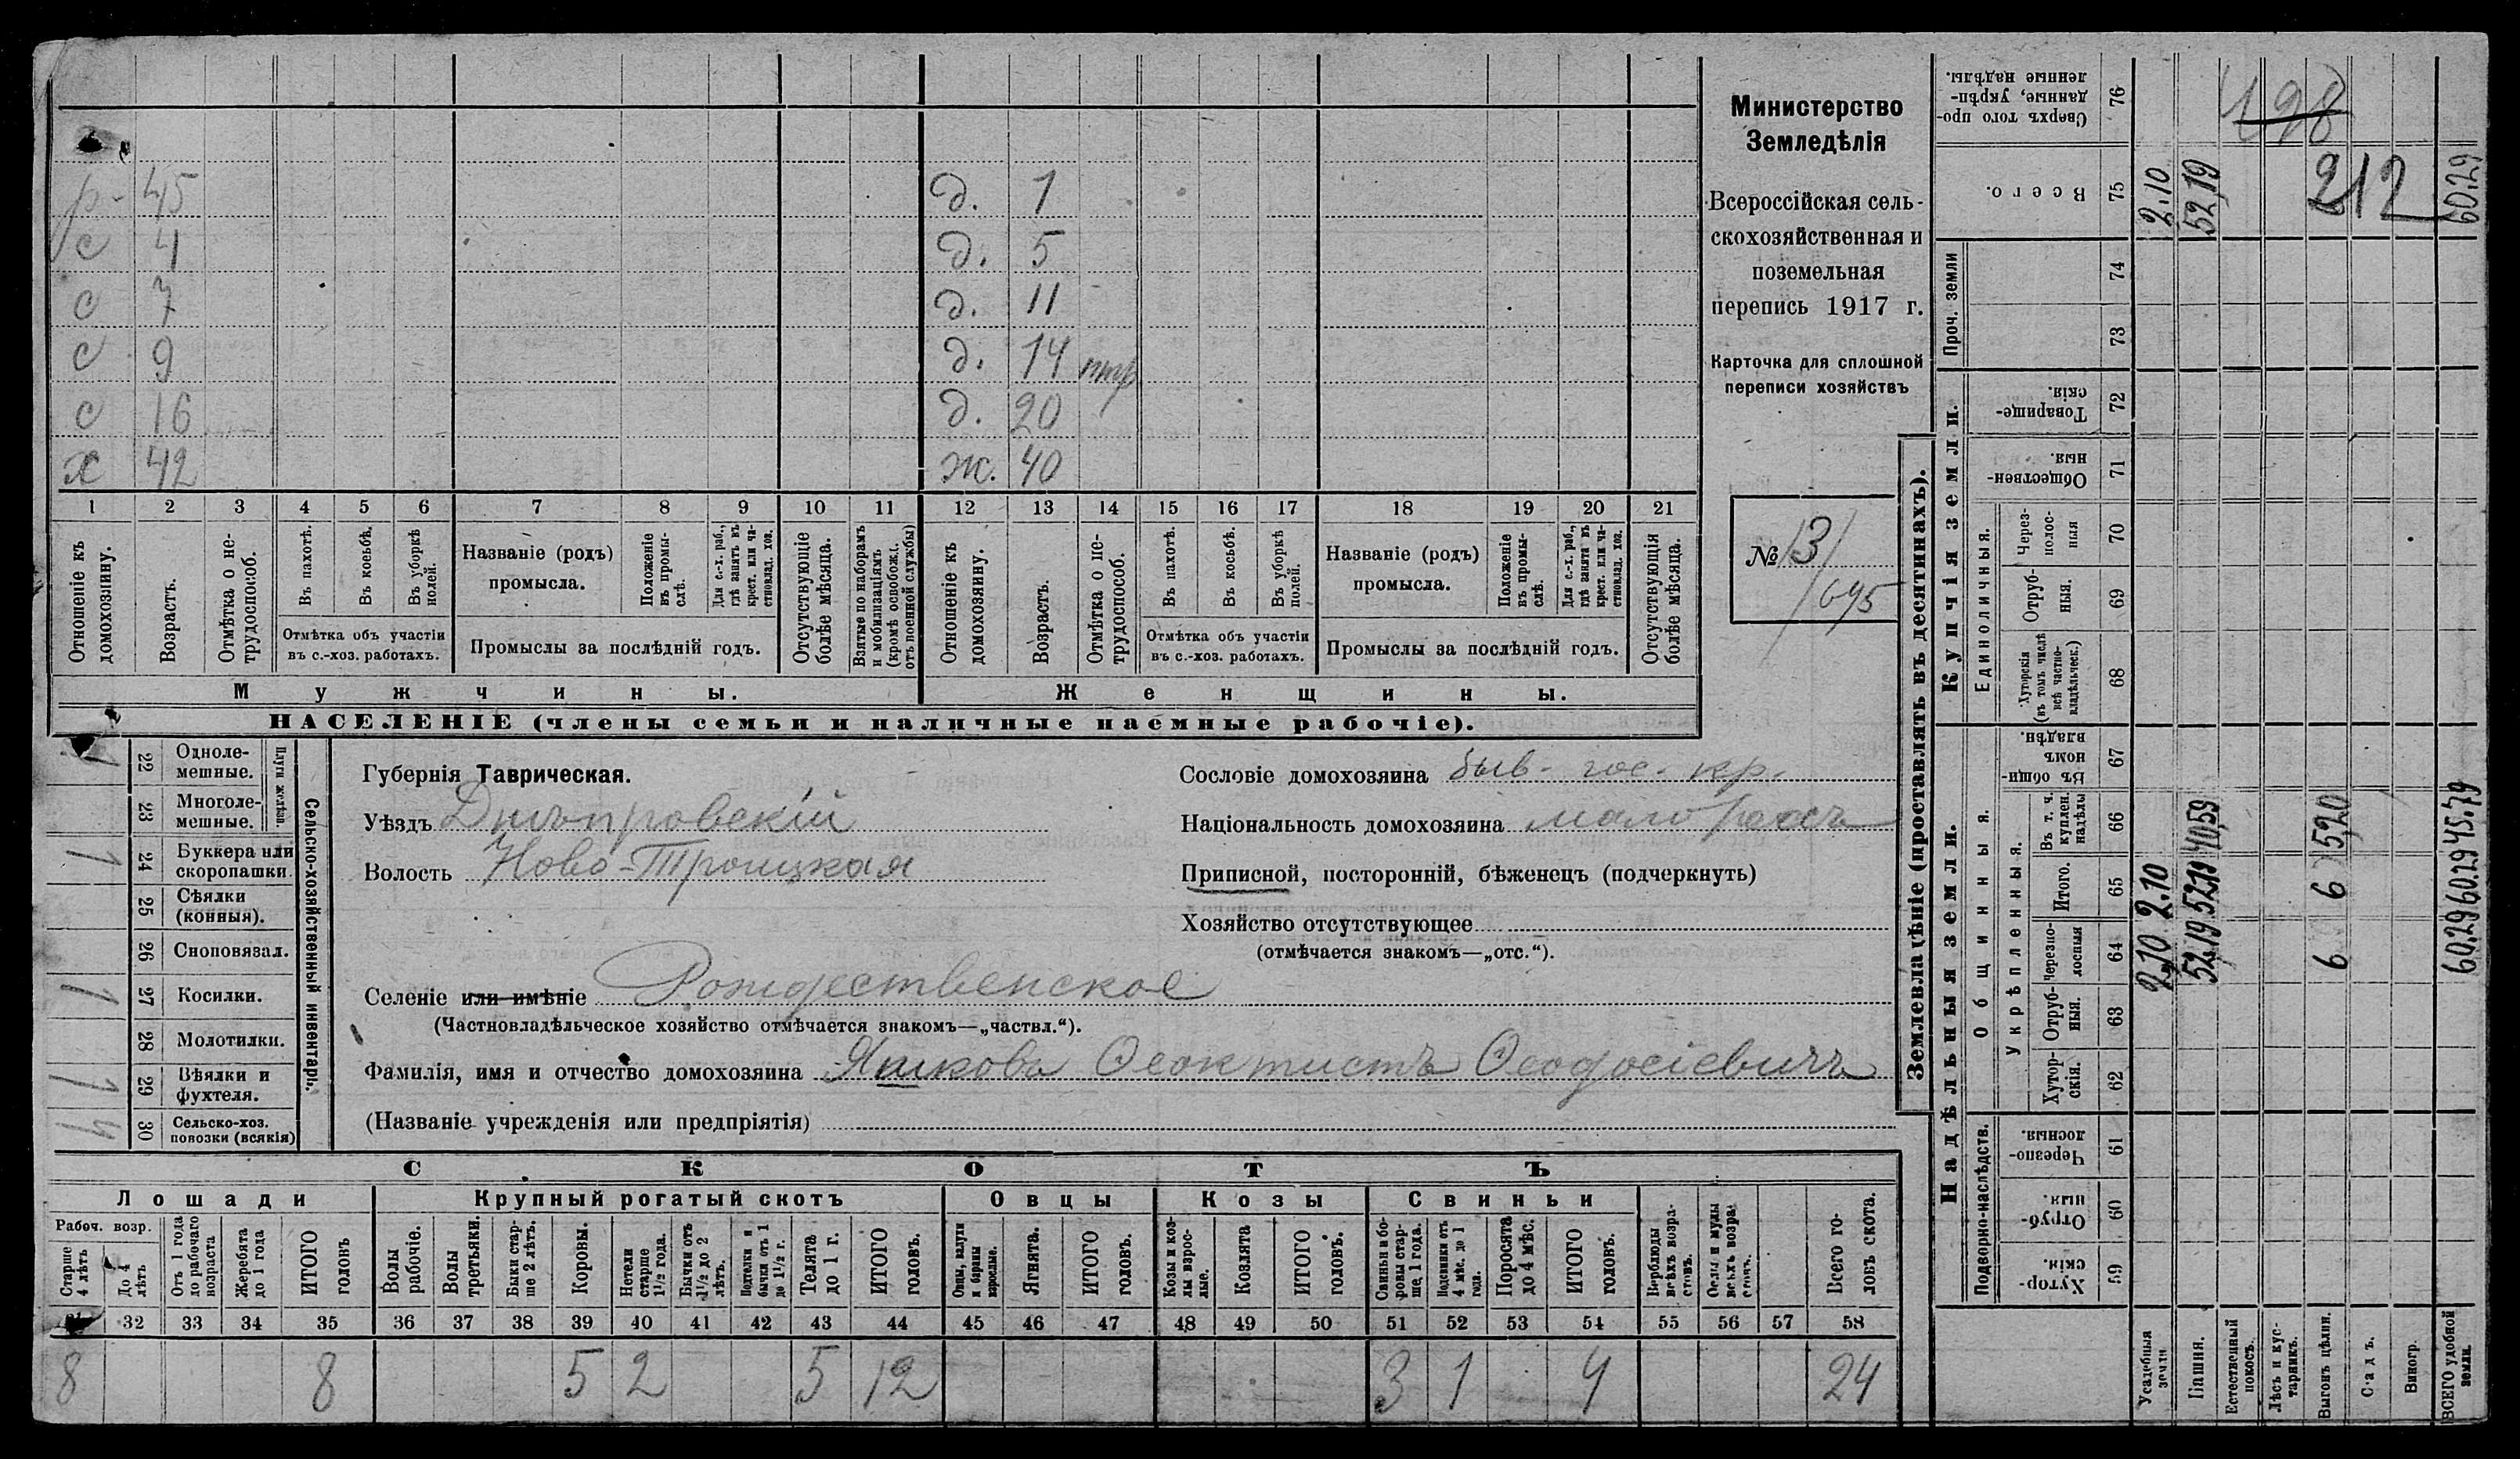 р. 45 д. 1
с 4 д. 5
с 7 д. 11
с 9 д. 14
с 16 д. 20
х 42 ж. 40
1 2 3 4 5 6 7 8 9 10 11 12 13 14 15 16 17 18 19 20 21
Отношеніе къ домохозяину.
Возрастъ.
Отмѣтка о нетрудоспособ.
Въ пахотѣ.
Въ косьбѣ.
Въ уборкѣ полей.
Отмѣтка объ участіи
въ с.-хоз. работахъ.
Названіе (родъ)
промысла.
Положеніе въ промыслѣ.
Для с.-х. раб., гдѣ занятъ въ крест. или частновлад. хоз.
Промыслы за послѣдній годъ.
Отсутствующіе болѣе мѣсяца.
Взятые по наборамъ и мобилизаціямъ (кромѣ освобожд. отъ военной службы)
Отношеніе къ домохозяину.
Возрастъ.
Отмѣтка о нетрудоспособ.
Въ пахотѣ.
Въ косьбѣ.
Въ уборкѣ полей.
Отмѣтка объ участіи
въ с.-хоз. работахъ.
Названіе (родъ)
промысла.
Положеніе въ промыслѣ.
Для с.-х. раб., гдѣ занята въ крест. или частновлад. хоз.
Промыслы за послѣдній годъ.
Отсутствующія болѣе мѣсяца.
Мужчины. Женщины.
НАСЕЛЕНІЕ (члены семьи и наличные наемные рабочіе).
Министерство
Земледѣлія
Всероссійская сель-
скохозяйственная и
поземельная
перепись 1917 г.
Карточка для сплошной
переписи хозяйствъ
№ 13
695
Сельско-хозяйственный инвентарь.
Плуги желѣзн.
22 Одноле-
мешные.
23 Многоле-
мешные.
1 24 Буккера или
скоропашки.
25 Сѣялки
(конныя).
26 Сноповязал.
1 27 Косилки.
28 Молотилки.
1 29 Вѣялки и
фухтеля.
4 30 Сельско-хоз.
повозки (всякія)
Губернія Таврическая.
Уѣздъ Днѣпровскій
Волость Ново-Троицкая
Сословіе домохозяина быв. гос. кр.
Національность домохозяина малороссъ
Приписной, посторонній, бѣженец (подчеркнуть)
Хозяйство отсутствующее
(отмѣчается знакомъ—„отс.“).
Селеніе или имѣніе Рождественское
(Частновладѣльческое хозяйство отмѣчается знакомъ—„частвл.“).
Фамилія, имя и отчество домохозяина Яшковъ Ѳеоктистъ Ѳеодосіевичъ
(Названіе учрежденія или предпріятія)
СКОТЪ
Лошади Крупный рогатый скотъ Овцы Козы Свиньи
Рабоч. возр.
Старше 4 лѣтъ
До 4 лѣтъ
Отъ 1 года до рабочаго возраста
Жеребята до 1 года
ИТОГО головъ
Волы рабочіе.
Волы третьяки.
Быки старше 2 лѣтъ.
Коровы.
Нетели старше 1½ года.
Бычки отъ 1½ до 2 лѣтъ.
Подтелки и бычки отъ 1 до 1½ г.
Телята до 1 г.
ИТОГО головъ.
Овцы, валухи и бараны взрослые.
Ягнята.
ИТОГО головъ.
Козы и козлы взрослые.
Козлята
ИТОГО головъ.
Свиньи и боровы старше, 1 года.
Подсвинки отъ 4 мѣс. до 1 года.
Поросята до 4 мѣс.
ИТОГО головъ.
Верблюды всѣхъ возрастовъ.
Ослы и мулы всѣхъ возрастовъ.
Всего головъ скота.
32 33 34 35 36 37 38 39 40 41 42 43 44 45 46 47 48 49 50 51 52 53 54 55 56 57 58
8 8 5 2 5 12 3 1 4 24
Землевладѣніе (проставлять въ десятинахъ).
Надѣльныя земли.
Купчія земли.
Проч. земли
Подворно-наслѣдств.
Общинныя.
Укрѣпленныя.
Единоличныя.
Сверхъ того проданные, укрѣпленные надѣлы. 76
198
Всего. 75 2.10 52,19 212 60.29
74
73
Товарищескія. 72
Общественныя. 71
Черезполосныя 70
Отрубныя. 69
Хуторскія (въ томъ числѣ всѣ частновладѣльческ.) 68
Въ общинномъ владѣн. 67
Въ т. ч. куплен. надѣлы 66 40,59 5,20 45.79
Итого. 65 2.10 52.19 6 60.29
Черезполосныя 64 2,10 52.19 6 60.29
Отрубныя. 63
Хуторскія. 62
Черезполосныя. 61
Отрубныя. 60
Хуторскія. 59
Усадебныя земли
Пашня.
Естественный покосъ.
Лѣсъ и кустарникъ.
Выгонъ цѣлин.
Садъ.
Виногр.
ВСЕГО удобной земли.